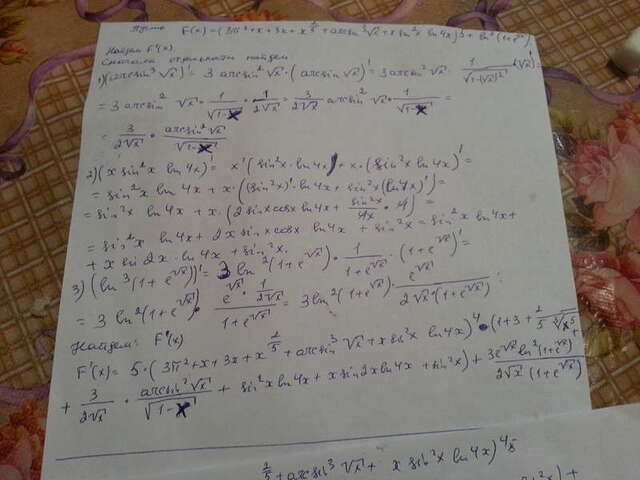 Пусть F(x) = (3π² + x + 3x + x^(2/5) + arcsin³√x + x sin²x ln 4x)⁵ + ln³(1+e^√x)
Найдём F'(x).
Сначала отдельности найдём
1) (arcsin³√x)' = 3 arcsin²√x · (arcsin√x)' = 3 arcsin²√x · 1/√(1-(√x)²) · (√x)' =
= 3 arcsin²√x · 1/√(1-x) · 1/(2√x) = 3/(2√x) arcsin²√x · 1/√(1-x) =
= 3/(2√x) · arcsin²√x/√(1-x)
2) (x sin²x ln 4x)' = x'(sin²x · ln 4x) + x · (sin²x ln 4x)' =
= sin²x ln 4x + x · ((sin²x)' · ln 4x + sin²x (ln 4x)') =
= sin²x ln 4x + x · (2 sin x cos x ln 4x + sin²x/4x · 4) =
= sin²x ln 4x + 2x sin x cos x ln 4x + sin²x = sin²x ln 4x +
+ x sin 2x · ln 4x + sin²x.
3) (ln³(1+e^√x))' = 3 ln²(1+e^√x) · 1/(1+e^√x) · (1+e^√x)' =
= 3 ln²(1+e^√x) · (e^√x · 1/(2√x))/(1+e^√x) = 3 ln²(1+e^√x) · e^√x/(2√x · (1+e^√x))
Найдём: F'(x)
F'(x) = 5 · (3π² + x + 3x + x^(2/5) + arcsin³√x + x sin²x ln 4x)⁴ · (1 + 3 + 2/(5 ⁵√x³) +
+ 3/(2√x) · arcsin²√x/√(1-x) + sin²x ln 4x + x sin 2x ln 4x + sin²x) + 3e^√x ln²(1+e^√x)/(2√x (1+e^√x))
2/5 + arcsin³√x + x sin²x ln 4x)⁴